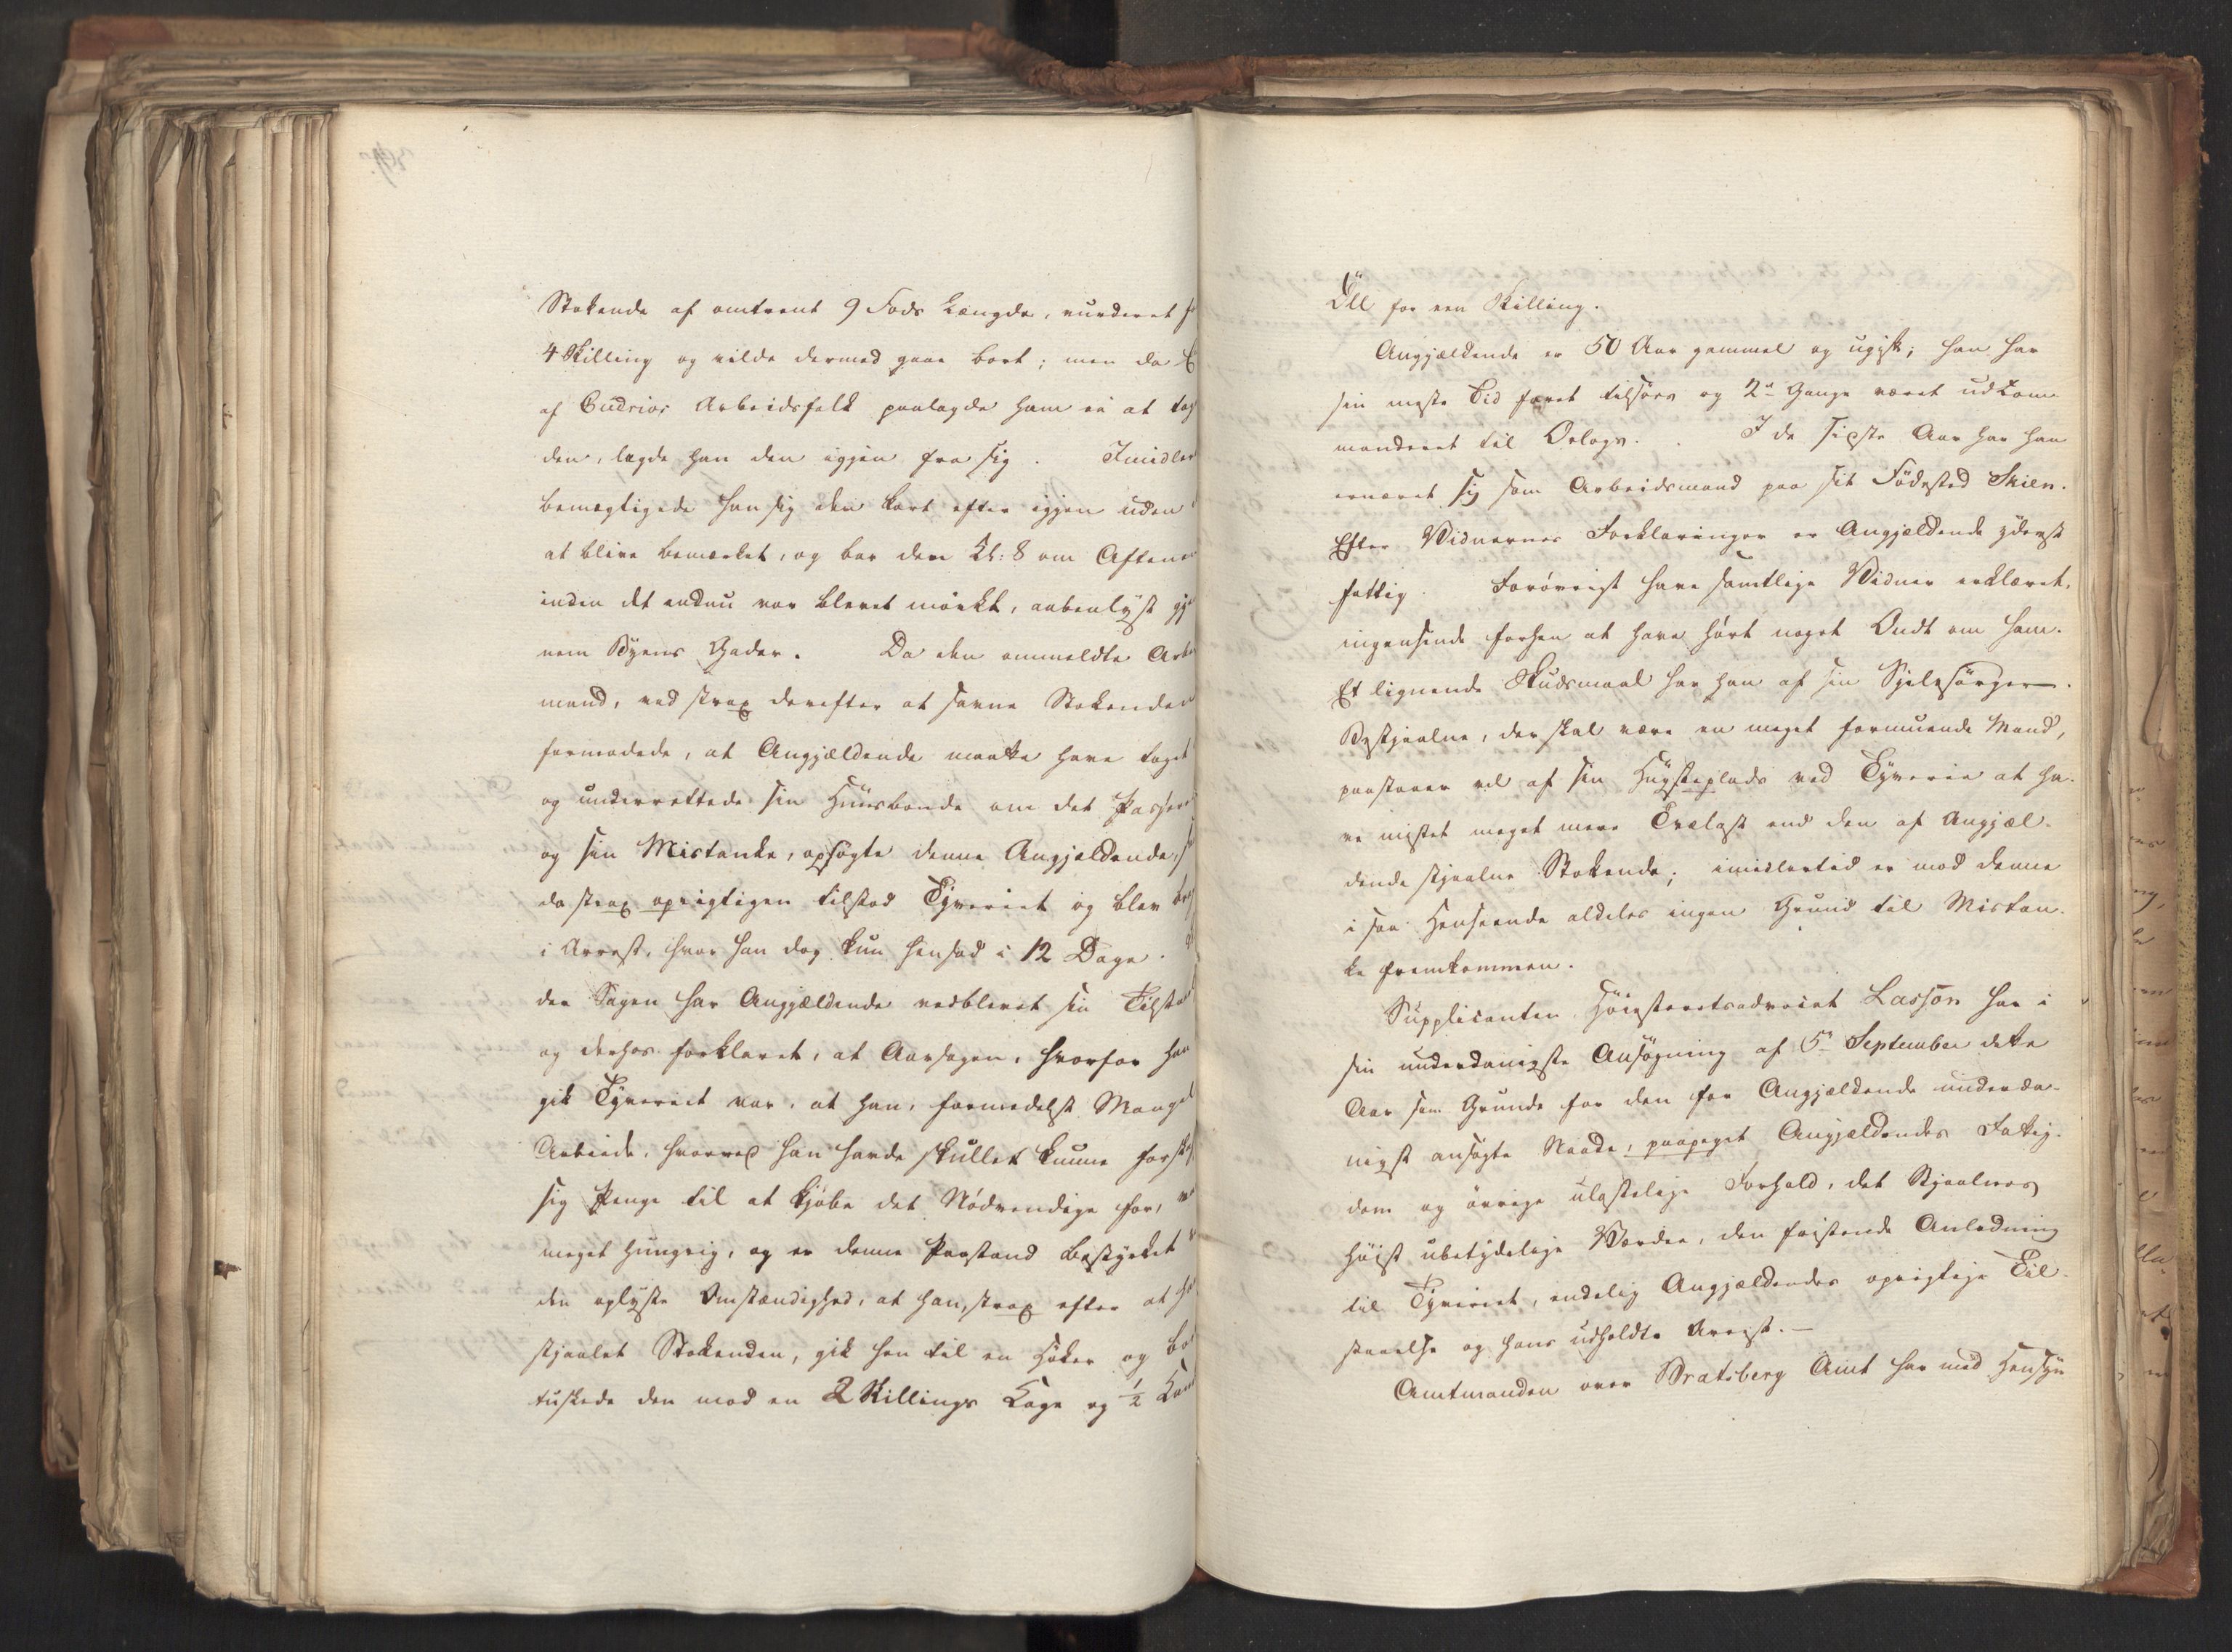 Stokende af omtrent 9 Fods Længde, vurderet
4 Skilling og vilde dermed gaae bort; men da
af Cudrios Arbeidsfolk paalagde ham ei at tage
den, lagde han den igjen fra sig. Imidler
bemægtigede han sig den kort efter igjen uden
at blive bemærket, og bar den Kl: 8 om Aftenen
inden det endnu var blevet mörkt, aabenlyst gje
nem Byens Gader. Da den ommeldte Arbe
mand, ved strax derefter at savne Stokenden
formodede, at Angjældende maatte have taget
og underrettede sin Huusbonde om det Passere
og sin Mistanke, opsögte denne Angjældende,
da strax oprigtigen tilstod Tyveriet og blev
i Arrest, hvor han dog kun hensad i 12 Dage.
der Sagen har Angjældende vedblevet sin Tilsta
og derhos forklaret, at Aarsagen, hvorfor han
gik Tyveriet var, at han, formedelst Mangel
Arbeide, hvorved han havde skullet kunne forska
sig Penge til at kjöbe det Nödvendige for,
meget hungrig, og er denne Paastand bestyrket
den oplyste Omstændighed, at han, strax efter at
stjaalet Stokenden, gik hen til en Höker og
tuskede den mod en 2 Skillings Kage og ½
Öll for een Skilling.
Angjældende er 50 Aar gammel og ugift; han har
sin meste Tid faret tilsöes og 2de Gange været udkom
manderet til Orlogs. I de sidste Aar har han
ernæret sig som Arbeidsmand paa sit Födested Skien.
Efter Vidnernes Forklaringer er Angjældende yderst
fattig. Forövrigt have samtlige Vidner erklæret,
ingensinde forhen at have hört noget Ondt om ham.
Et lignende Skudsmaal har han af sin Sjelesörger.
Bestjaalne, der skal være en meget formuende Mand,
paastaaer vel af sin Huusteplads ved Tyverie at ha-
ve mistet meget mere Trælast end den af Angjæl-
dende stjaalne Stokende; imidlertid er mod denne
i saa Henseende aldeles ingen Grund til Mistan-
ke fremkommen.
Supplicanten Höiesteretsadvocat Lasson har i
sin underdanigste Ansögning af 5te September dette
Aar som Grunde for den for Angjældende underda-
nigst ansögte Naade, paapeget Angjældendes Fattig-
dom og övrige ulastelige Forhold, det Stjaalnes
höist ubetydelige Værdie, den fristende Anledning
til Tyveriet, endelig Angjældendes oprigtige Til-
staaelse og hans udholdte Arrest.—
Amtmanden over Bratsberg Amt har med Hensyn